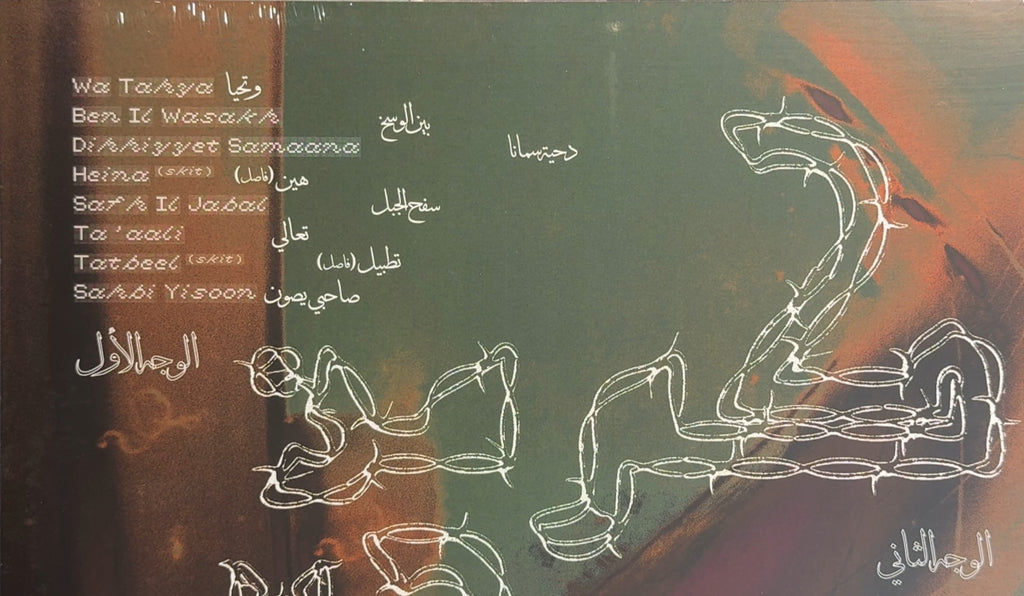 Wa Tahya وتحيا
Ben Il Wasakh بين الوسخ
Dihhiyyet Samaana دحية سمانا
Heina (skit) هين (فاصل)
Safh Il Jabal سفح الجبل
Ta'aali تعالي
Tatbeel (skit) تطبيل (فاصل)
Sahbi Yisoon صاحبي يصون
الوجه الأول
الوجه الثاني